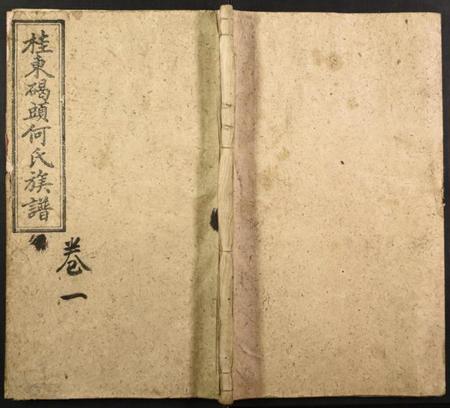 桂東碭頭何氏族譜
卷一